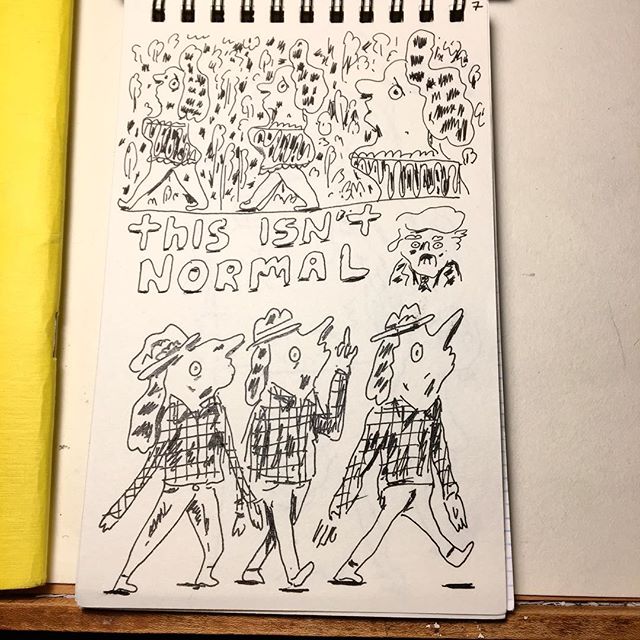 7
this isn't
NORMAL